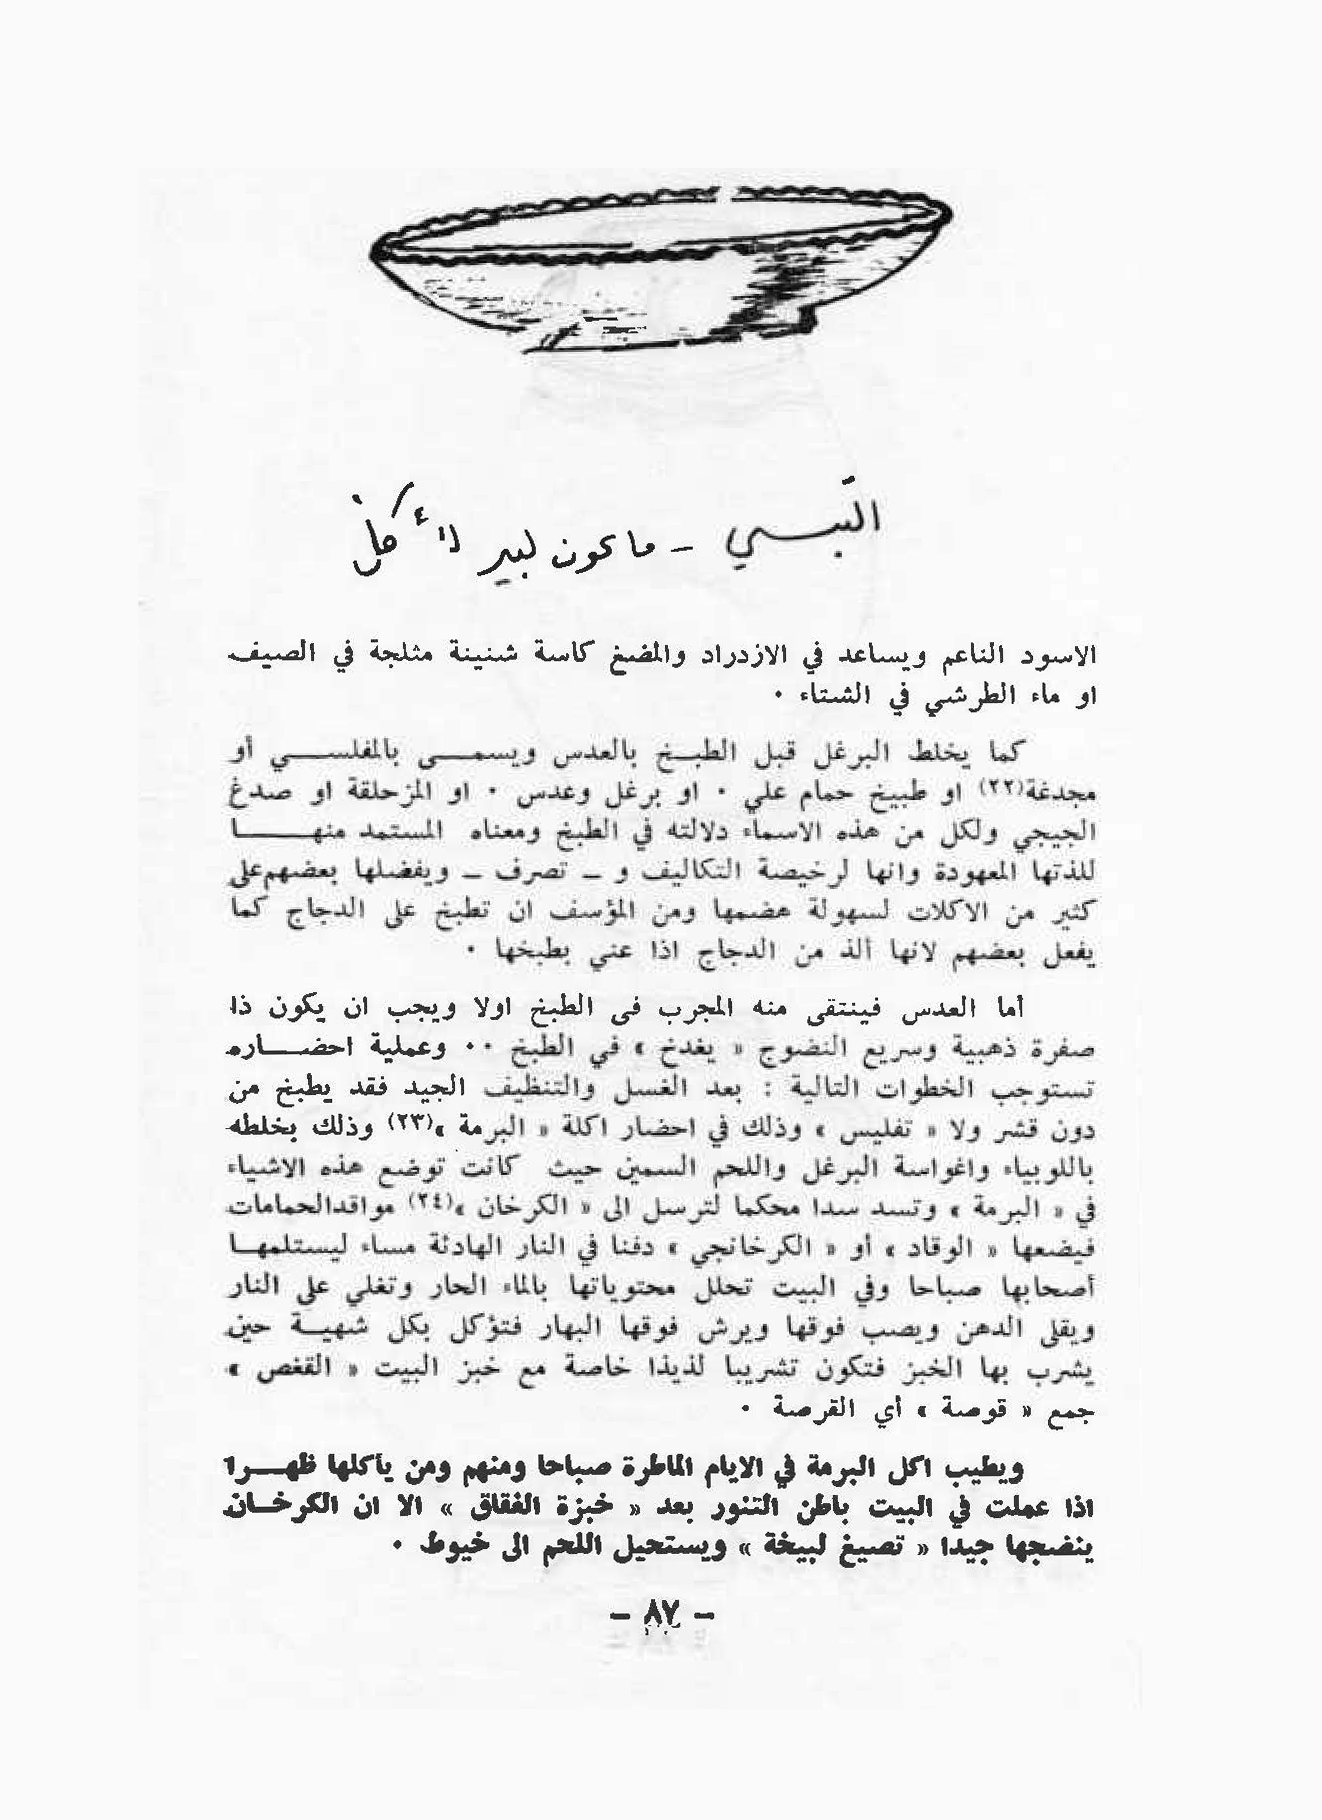 البّسي - ماعون لبير للأكل
الاسود الناعم ويساعد في الازدراد والمضغ كاسة شنينة مثلجة في الصيف
او ماء الطرشي في الشتاء ٠
كما يخلط البرغل قبل الطبخ بالعدس ويسمى بالمفلسي أو
مجدغة(٢٢) او طبيخ حمام علي ٠ او برغل وعدس ٠ او المزحلقة او صدغ
الجيجي ولكل من هذه الاسماء دلالته في الطبخ ومعناه المستمد منها
للذتها المعهودة وانها لرخيصة التكاليف و ـ تصرف ـ ويفضلها بعضهم على
كثير من الاكلات لسهولة هضمها ومن المؤسف ان تطبخ على الدجاج كما
يفعل بعضهم لانها ألذ من الدجاج اذا عني بطبخها ٠
أما العدس فينتقى منه المجرب في الطبخ اولا ويجب ان يكون ذا
صفرة ذهبية وسريع النضوج « يفدخ » في الطبخ ٠٠ وعملية احضاره
تستوجب الخطوات التالية : بعد الغسل والتنظيف الجيد فقد يطبخ من
دون قشر ولا « تفليس » وذلك في احضار اكلة « البرمة »(٢٣) وذلك بخلطه
باللوبياء واغواسة البرغل واللحم السمين حيث كانت توضع هذه الاشياء
في « البرمة » وتسد سدا محكما لترسل الى « الكرخان »(٢٤) مواقد الحمامات
فيضعها « الوقاد » أو « الكرخانجي » دفنا في النار الهادئة مساء ليستلمها
أصحابها صباحا وفي البيت تحلل محتوياتها بالماء الحار وتغلي على النار
ويقلى الدهن ويصب فوقها ويرش فوقها البهار فتؤكل بكل شهية حين
يشرب بها الخبز فتكون تشريبا لذيذا خاصة مع خبز البيت « القغص »
جمع « قوصة » أي القرصة ٠
ويطيب اكل البرمة في الايام الماطرة صباحا ومنهم ومن يأكلها ظهرا
اذا عملت في البيت باطن التنور بعد « خبزة الغقاق » الا ان الكرخان
ينضجها جيدا « تصيغ لبيخة » ويستحيل اللحم الى خيوط ٠
- ٨٧ -